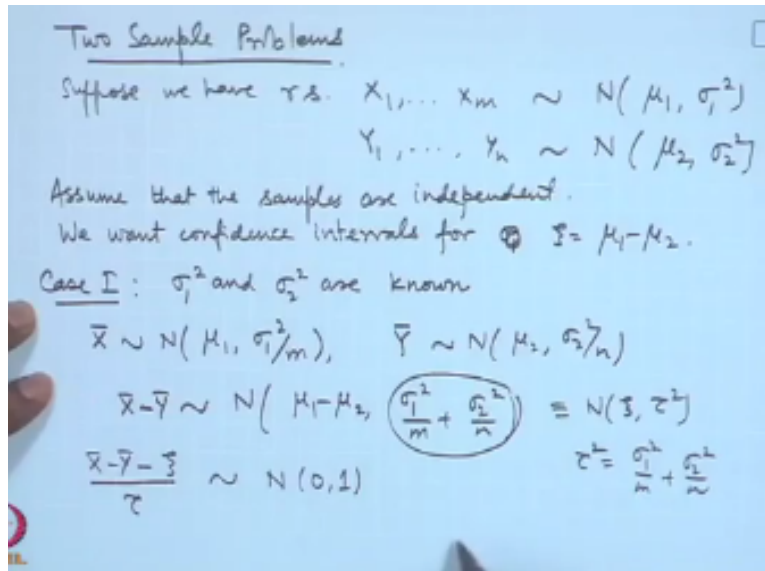 Two Sample Problems
Suppose we have r.s. X₁, ... Xₘ ~ N( μ₁, σ₁²)
Y₁, ..., Yₙ ~ N ( μ₂, σ₂²)
Assume that the samples are independent.
We want confidence intervals for ξ = μ₁-μ₂.
Case I : σ₁² and σ₂² are known
X̄ ~ N( μ₁, σ₁²/m), Ȳ ~ N( μ₂, σ₂²/n)
X̄-Ȳ ~ N( μ₁-μ₂, σ₁²/m + σ₂²/n) ≡ N(ξ, τ²)
(X̄-Ȳ-ξ)/τ ~ N(0,1) τ² = σ₁²/m + σ₂²/n